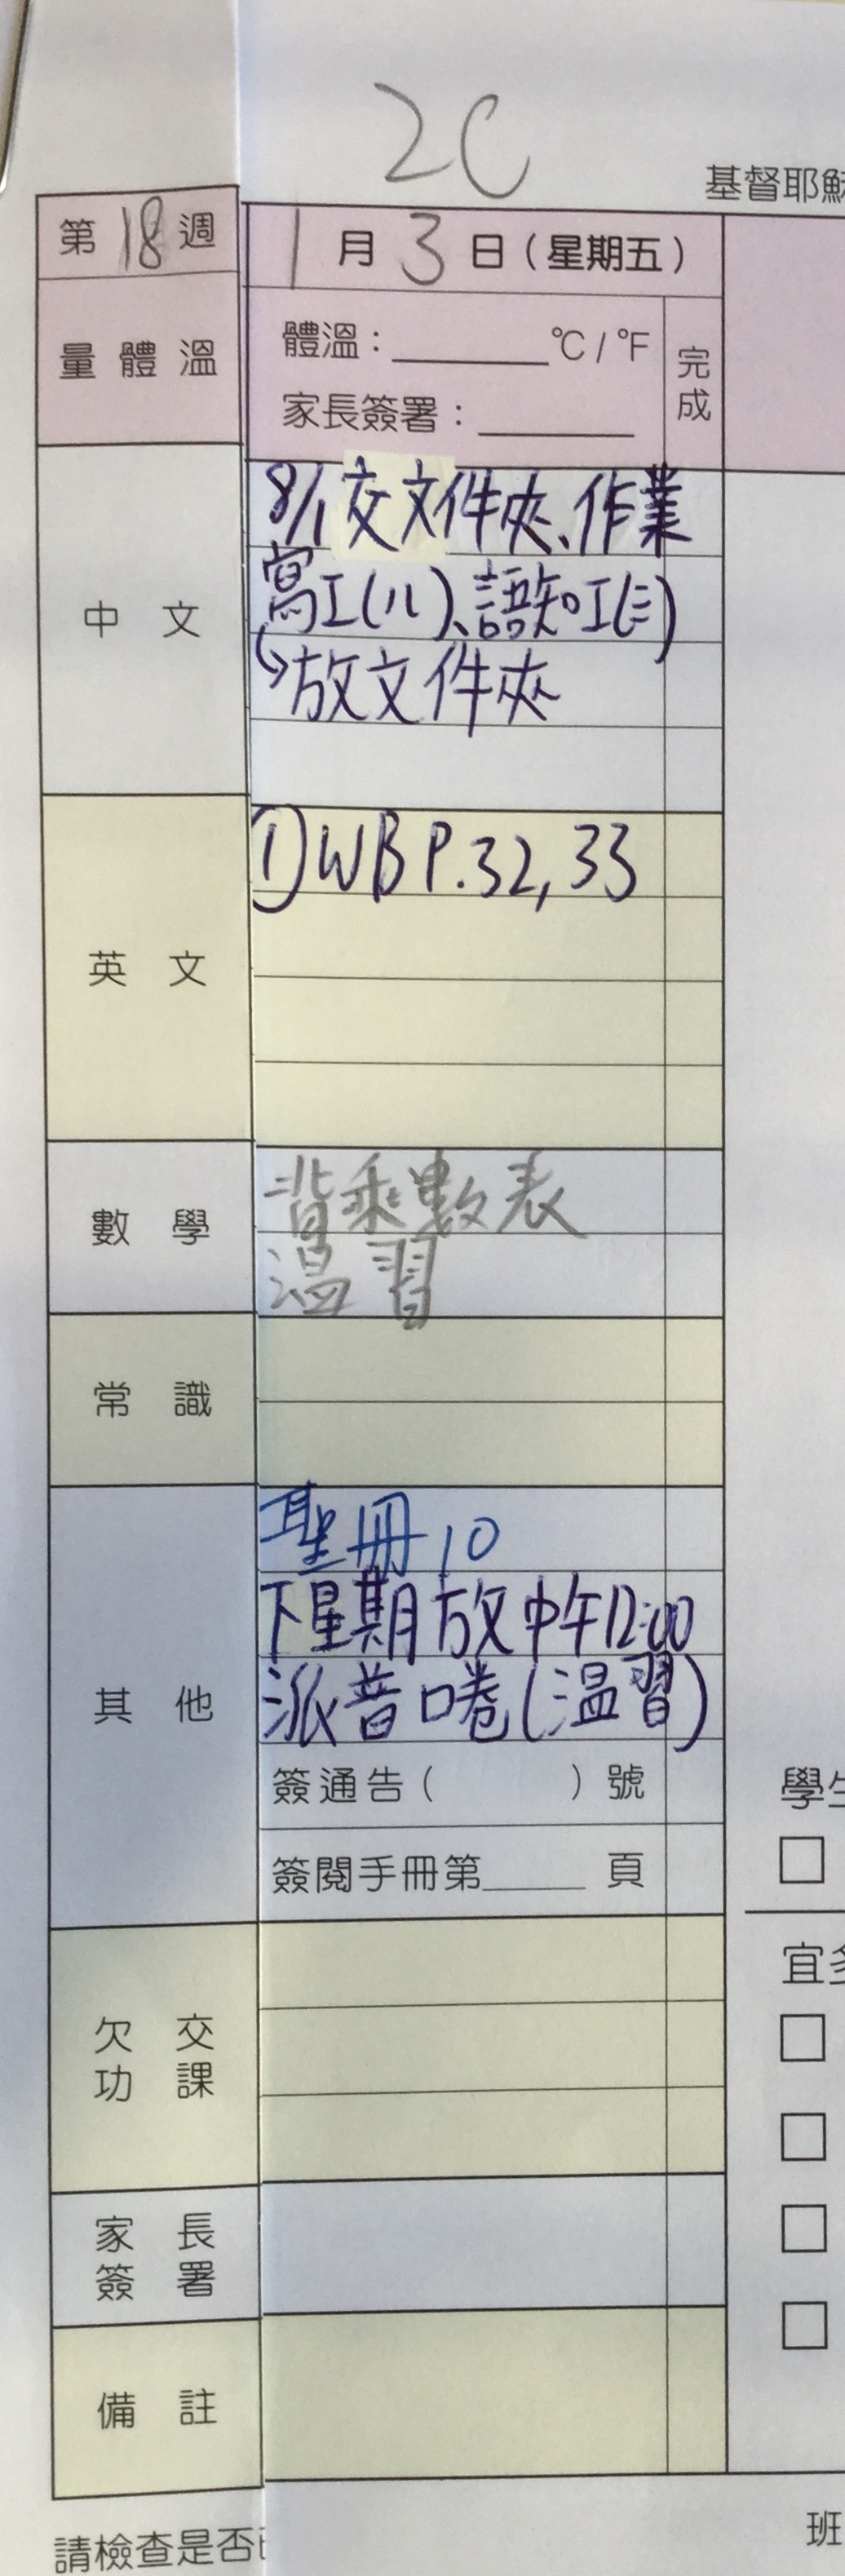 2C
基督耶穌
第18週
1月3日(星期五)
量體溫
體溫：______°C/°F
家長簽署：______
完成
中文
8/1交文件夾、作業
寫工(八)、語知工(三)
↳放文件夾
英文
①WB P.32,33
數學
背乘數表
温習
常識
其他
聖冊10
下星期放中午12:00
派普口卷(温習)
簽通告( )號
簽閱手冊第____頁
欠交功課
家長簽署
備註
學生
宜多
請檢查是否已
班